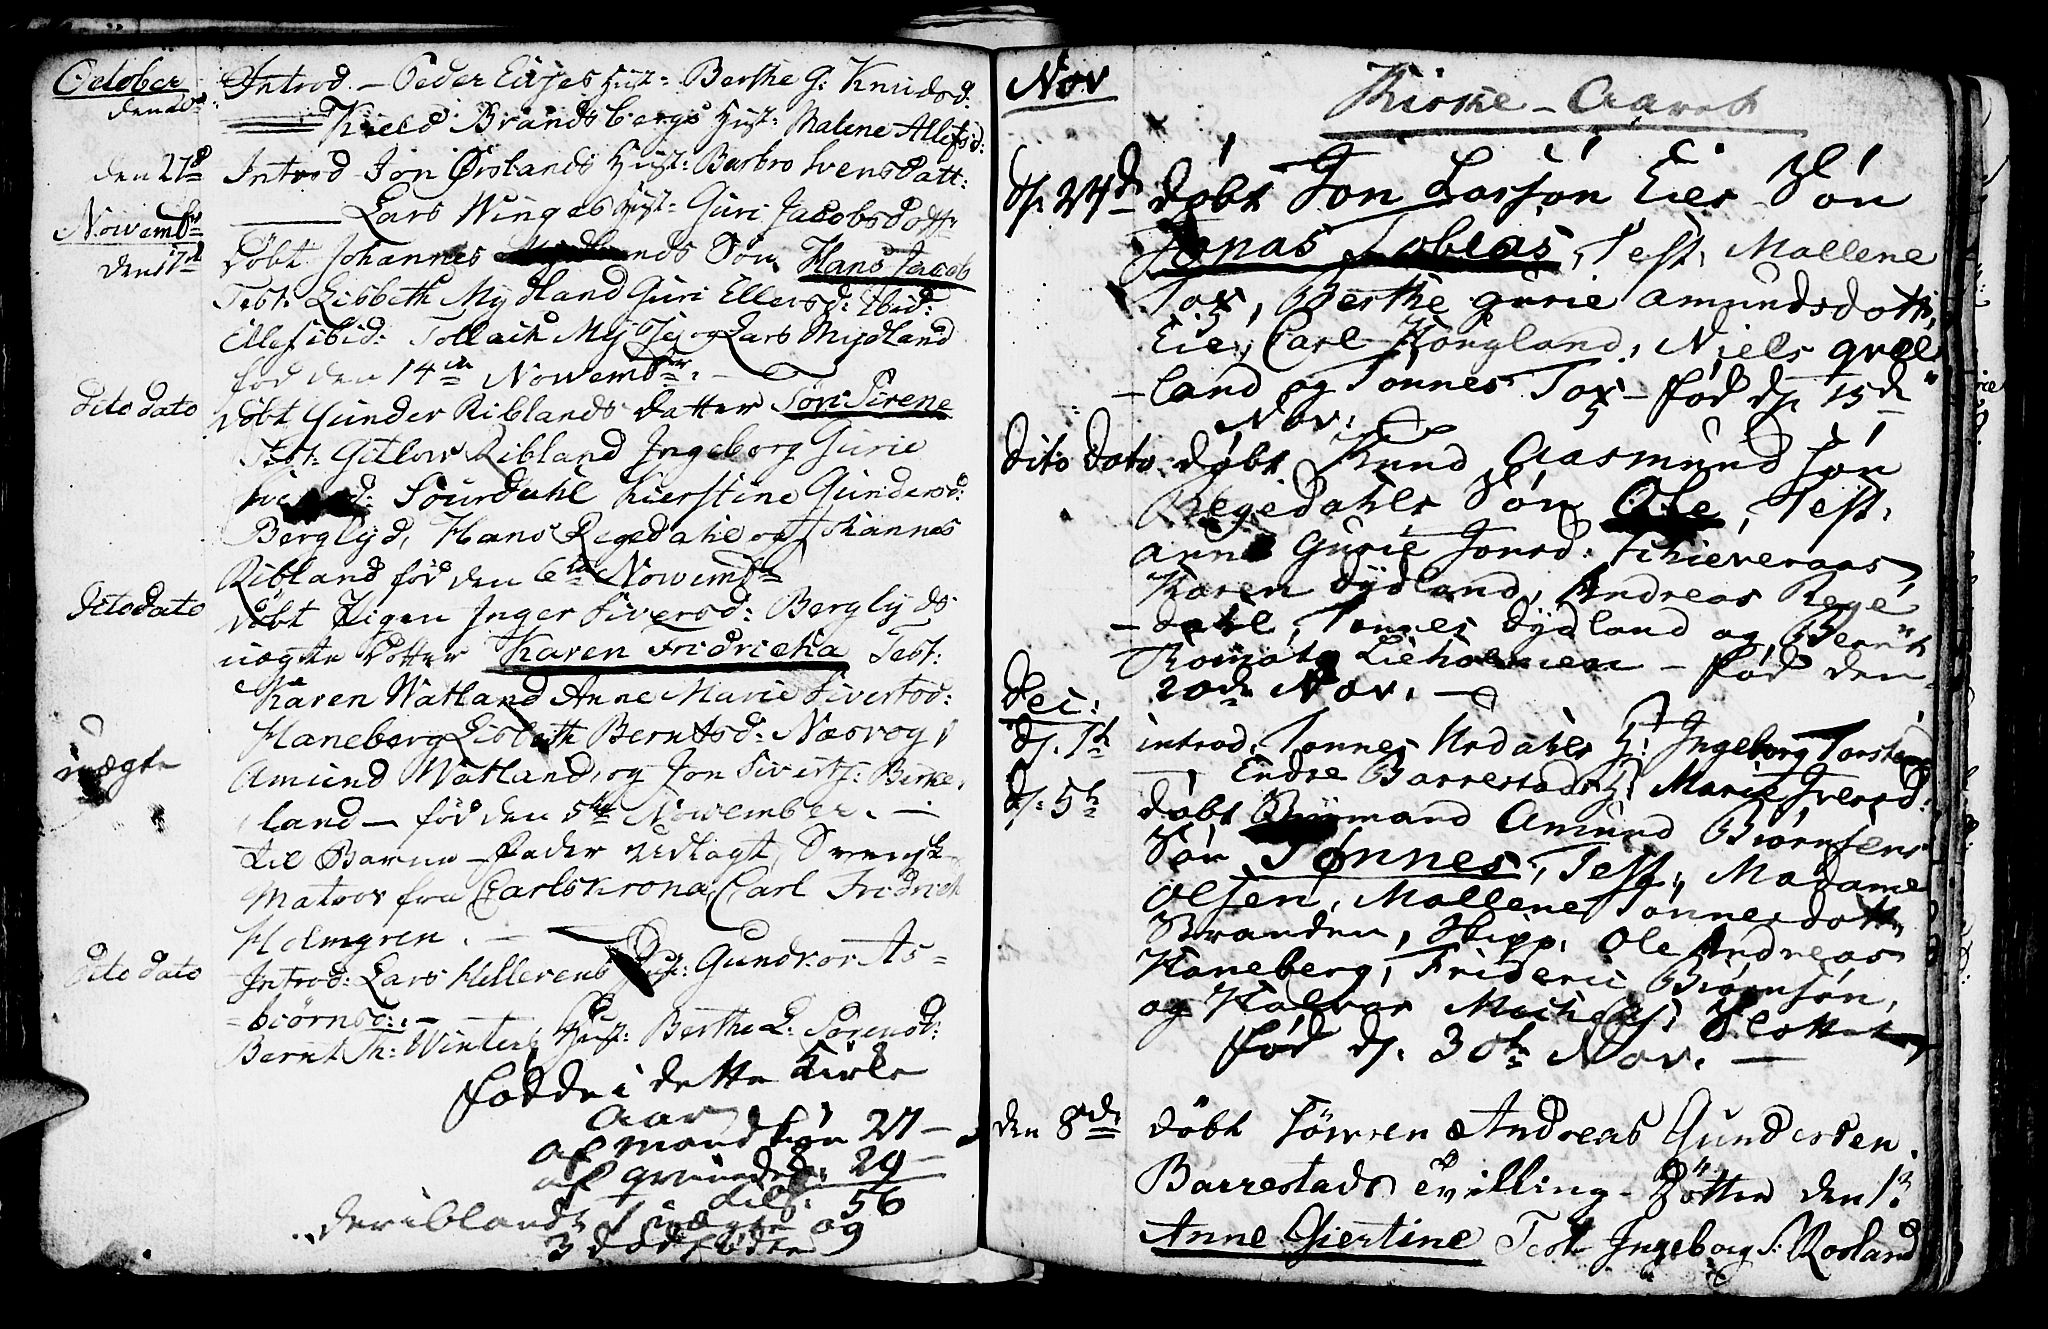 October
den 20de Introd. – Peder Eiges Hust: Berthe G: Knudsd:
Kield Brandsbergs Hust: Malene Allefsd:
den 27de Introd Jon Ørslands Hust: Barbro Svensdatt:
Lars Winges Hust: Guri Jacobsdottr
Novembr
den 17de Döbt Johannes Sön Hans Jacob
Test: Lisbeth Mydland Guri Ellevsd: Ibid:
Ellef ibid: Tollach Myhsej og Lars Mydland
fød den 14de Novembr: –
dito dato Döbt Gunder Riblands datter Siri Sirene
Test: Gitlow Ribland Ingeborg Gurie
Sourdahl Kierstine Gundersd:
Berglyd, Hans Regedahl og Johannes
Ribland fød den 6te Novembr
dito dato Döbt Pigen Inger Siversd: Berglyds
uægte Dotter Karen Fridricka Test:
Karen Watland Anne Marie Sivertsd:
Haneberg Lisbeth Berntsd: Næsvog,
uægte
Amund Watland, og Jon Siverts: Birke,
land – fød den 5te November. –
til Barne-fader udlagt, Svensk
Matros fra Carlskrona, Carl Fridrich
Holmgren. –
dito dato Introd: Lars Killerens Hust: Gundvor As=
=biørnsd: –
Bernt Th: Winters Hust: Berthe L: Sörensd:
födde i dette Kirke
Aar
af Mandkiön 27 –
af qvinded: 29 –
til: 56
deriblandt 1 uægte og
3 dödfödte
Nov
Kirke-Aaret
d. 24de døbt Jon Larsøn Eies Søn
Jonas Tobias, Test, Mallene
Tox, Berthe gurie Amundsdottr,
Eie, Carl Hougland, Niels qvel
-land og Tønnes Tox – fød d. 15de
Nov:
dito dato døbt Knud Aasmundsøn
Regedahls Søn Ole, Test,
Anne Gurie Jonsd: Schieveraas,
Karen Dydland, Andreas Rege
-dahl, Tønnes Dydland og Bernt
Lieholmen – fød den
20de Nov. –
Dec:
d. 1te introd, Tønnes Urdahls H: Ingeborg Torstensd
Endre Barrestads H: Marie Iversd:
d: 5te døbt Amund Biørnsens
Søn Tønnes, Test, Madame
Olsen, Mallene Tønnesdottr
Stranden, Skipp: Ole Andreas
Haneberg, Frideric Biørnsøn,
og Halvor Michels: Slottet,
fød d. 30te Nov. –
den 8de döbt Sörren Andreas Gundersen
Barrestads Tvilling-Dötter den 1:
Anne Giertine Test Ingeborg S: Rosland